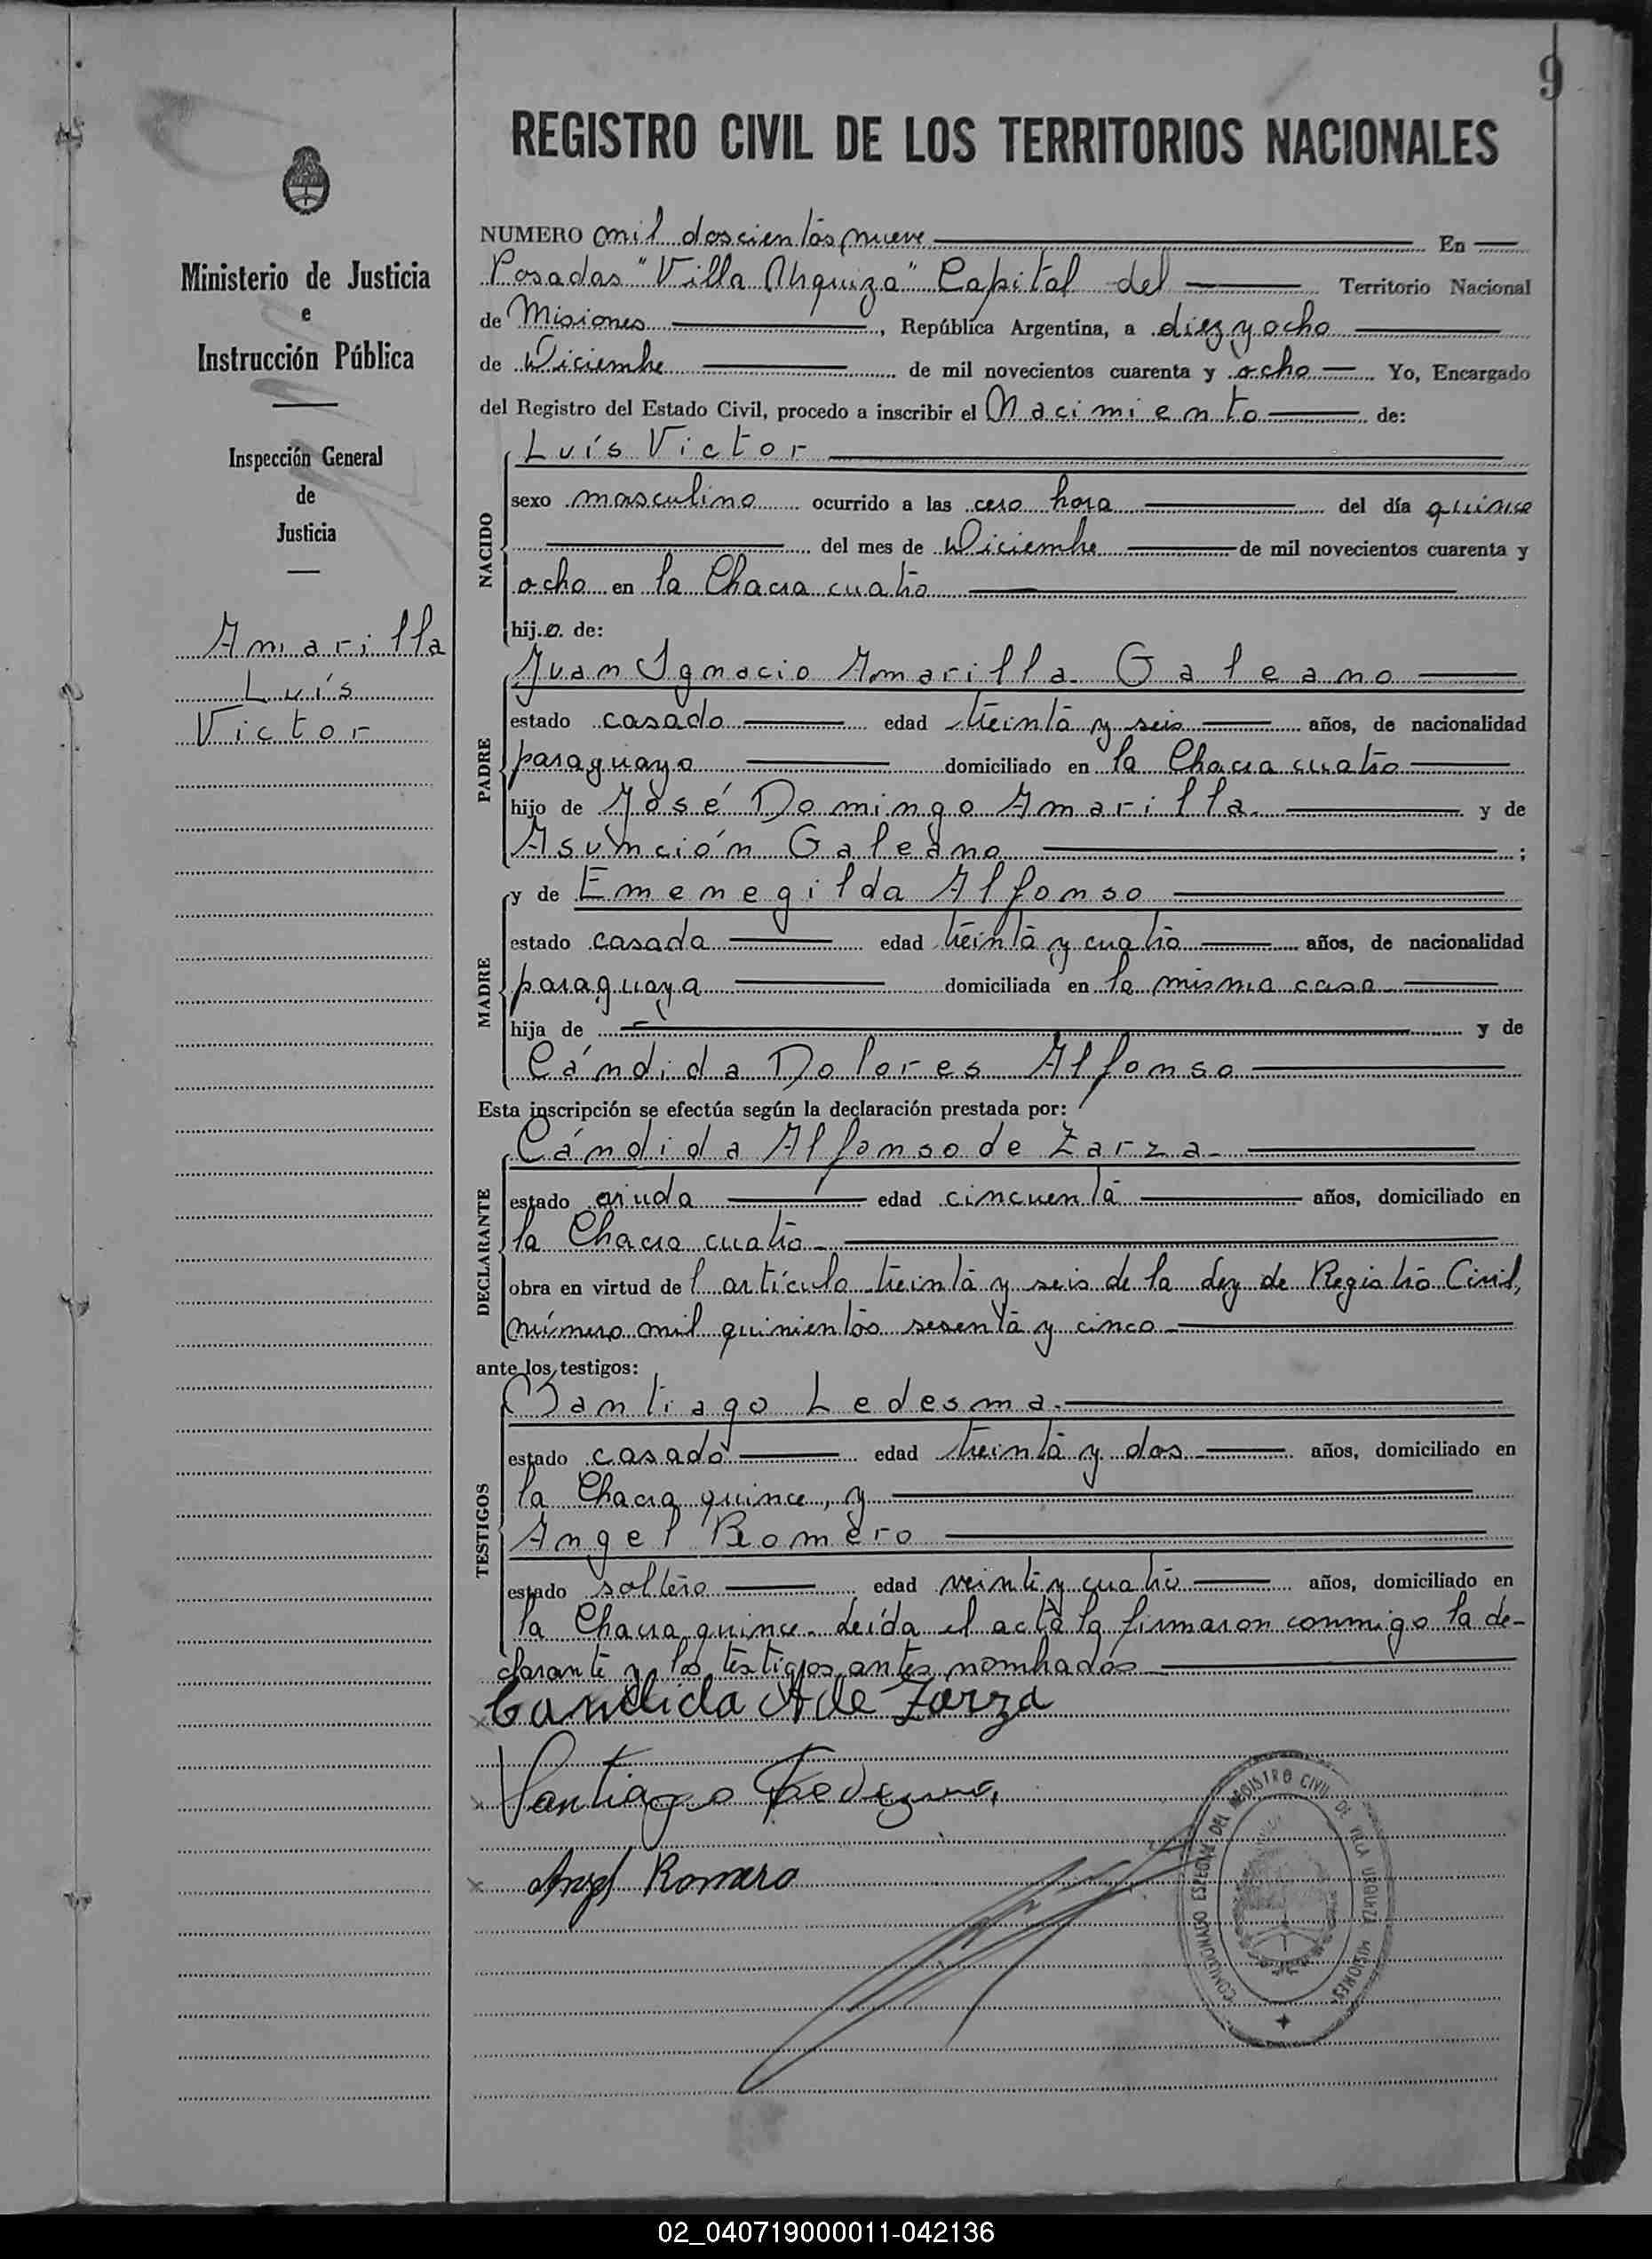 9
REGISTRO CIVIL DE LOS TERRITORIOS NACIONALES
Ministerio de Justicia
e
Instrucción Pública
Inspección General
de
Justicia
Amarilla
Luís
Victor
NUMERO mil doscientos nueve En
Posadas "Villa Urquiza" Capital del Territorio Nacional
de Misiones, República Argentina, a diez y ocho
de Diciembre de mil novecientos cuarenta y ocho Yo, Encargado
del Registro del Estado Civil, procedo a inscribir el Nacimiento de:
NACIDO
Luís Victor
sexo masculino ocurrido a las cero hora del día quince
del mes de Diciembre de mil novecientos cuarenta y
ocho en la Chacra cuatro
hij.o. de:
PADRE
Juan Ignacio Amarilla Galeano
estado casado edad treinta y seis años, de nacionalidad
paraguayo domiciliado en la Chacra cuatro
hijo de José Domingo Amarilla y de
Asunción Galeano ;
MADRE
y de Emenegilda Alfonso
estado casada edad treinta y cuatro años, de nacionalidad
paraguaya domiciliada en la misma casa
hija de y de
Cándida Dolores Alfonso
Esta inscripción se efectúa según la declaración prestada por:
DECLARANTE
Cándida Alfonso de Zarza
estado viuda edad cincuenta años, domiciliado en
la Chacra cuatro
obra en virtud del artículo treinta y seis de la Ley de Registro Civil,
número mil quinientos sesenta y cinco
ante los testigos:
TESTIGOS
Santiago Ledesma
estado casado edad treinta y dos años, domiciliado en
la Chacra quince, y
Angel Romero
estado soltero edad veinte y cuatro años, domiciliado en
la Chacra quince. Leída el acta la firmaron conmigo la de-
clarante y los testigos antes nombrados
Candida A de Zarza
Santiago Ledezma
Angel Romero
COMISIONADO ESPECIAL DEL REGISTRO CIVIL DE VILLA URQUIZA MISIONES
02_040719000011-042136